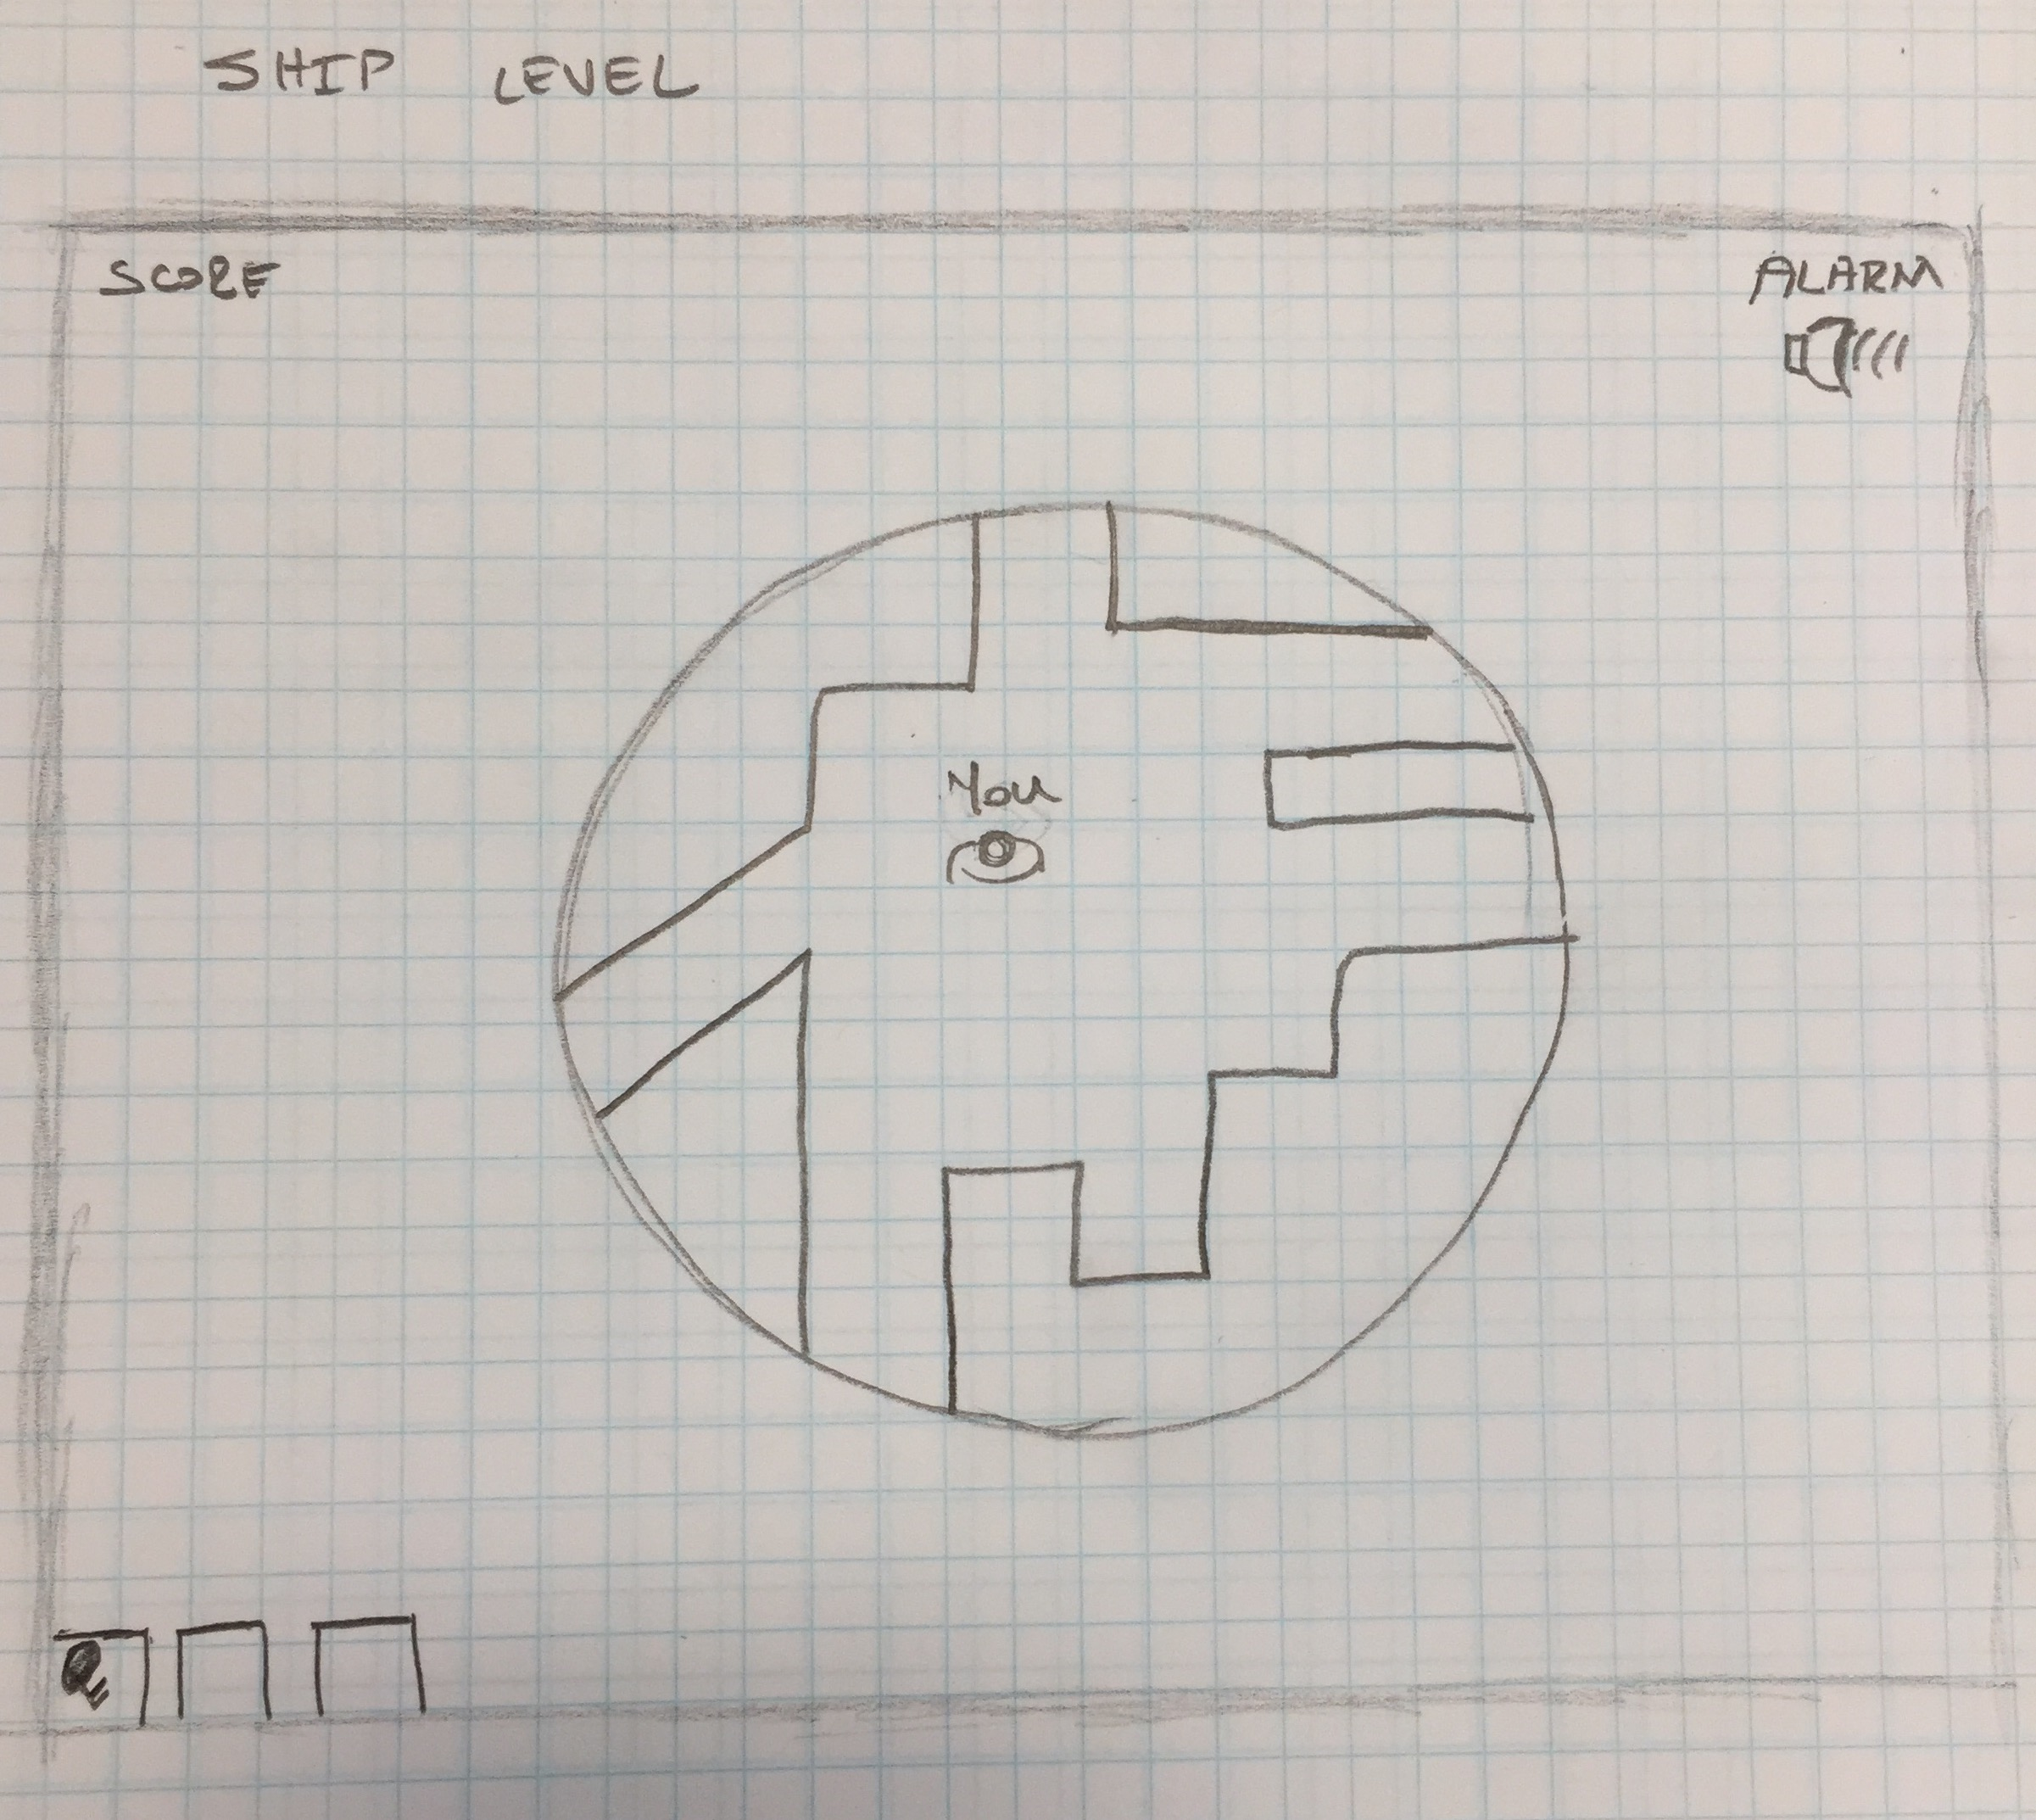 SHIP LEVEL
SCORE
ALARM
You